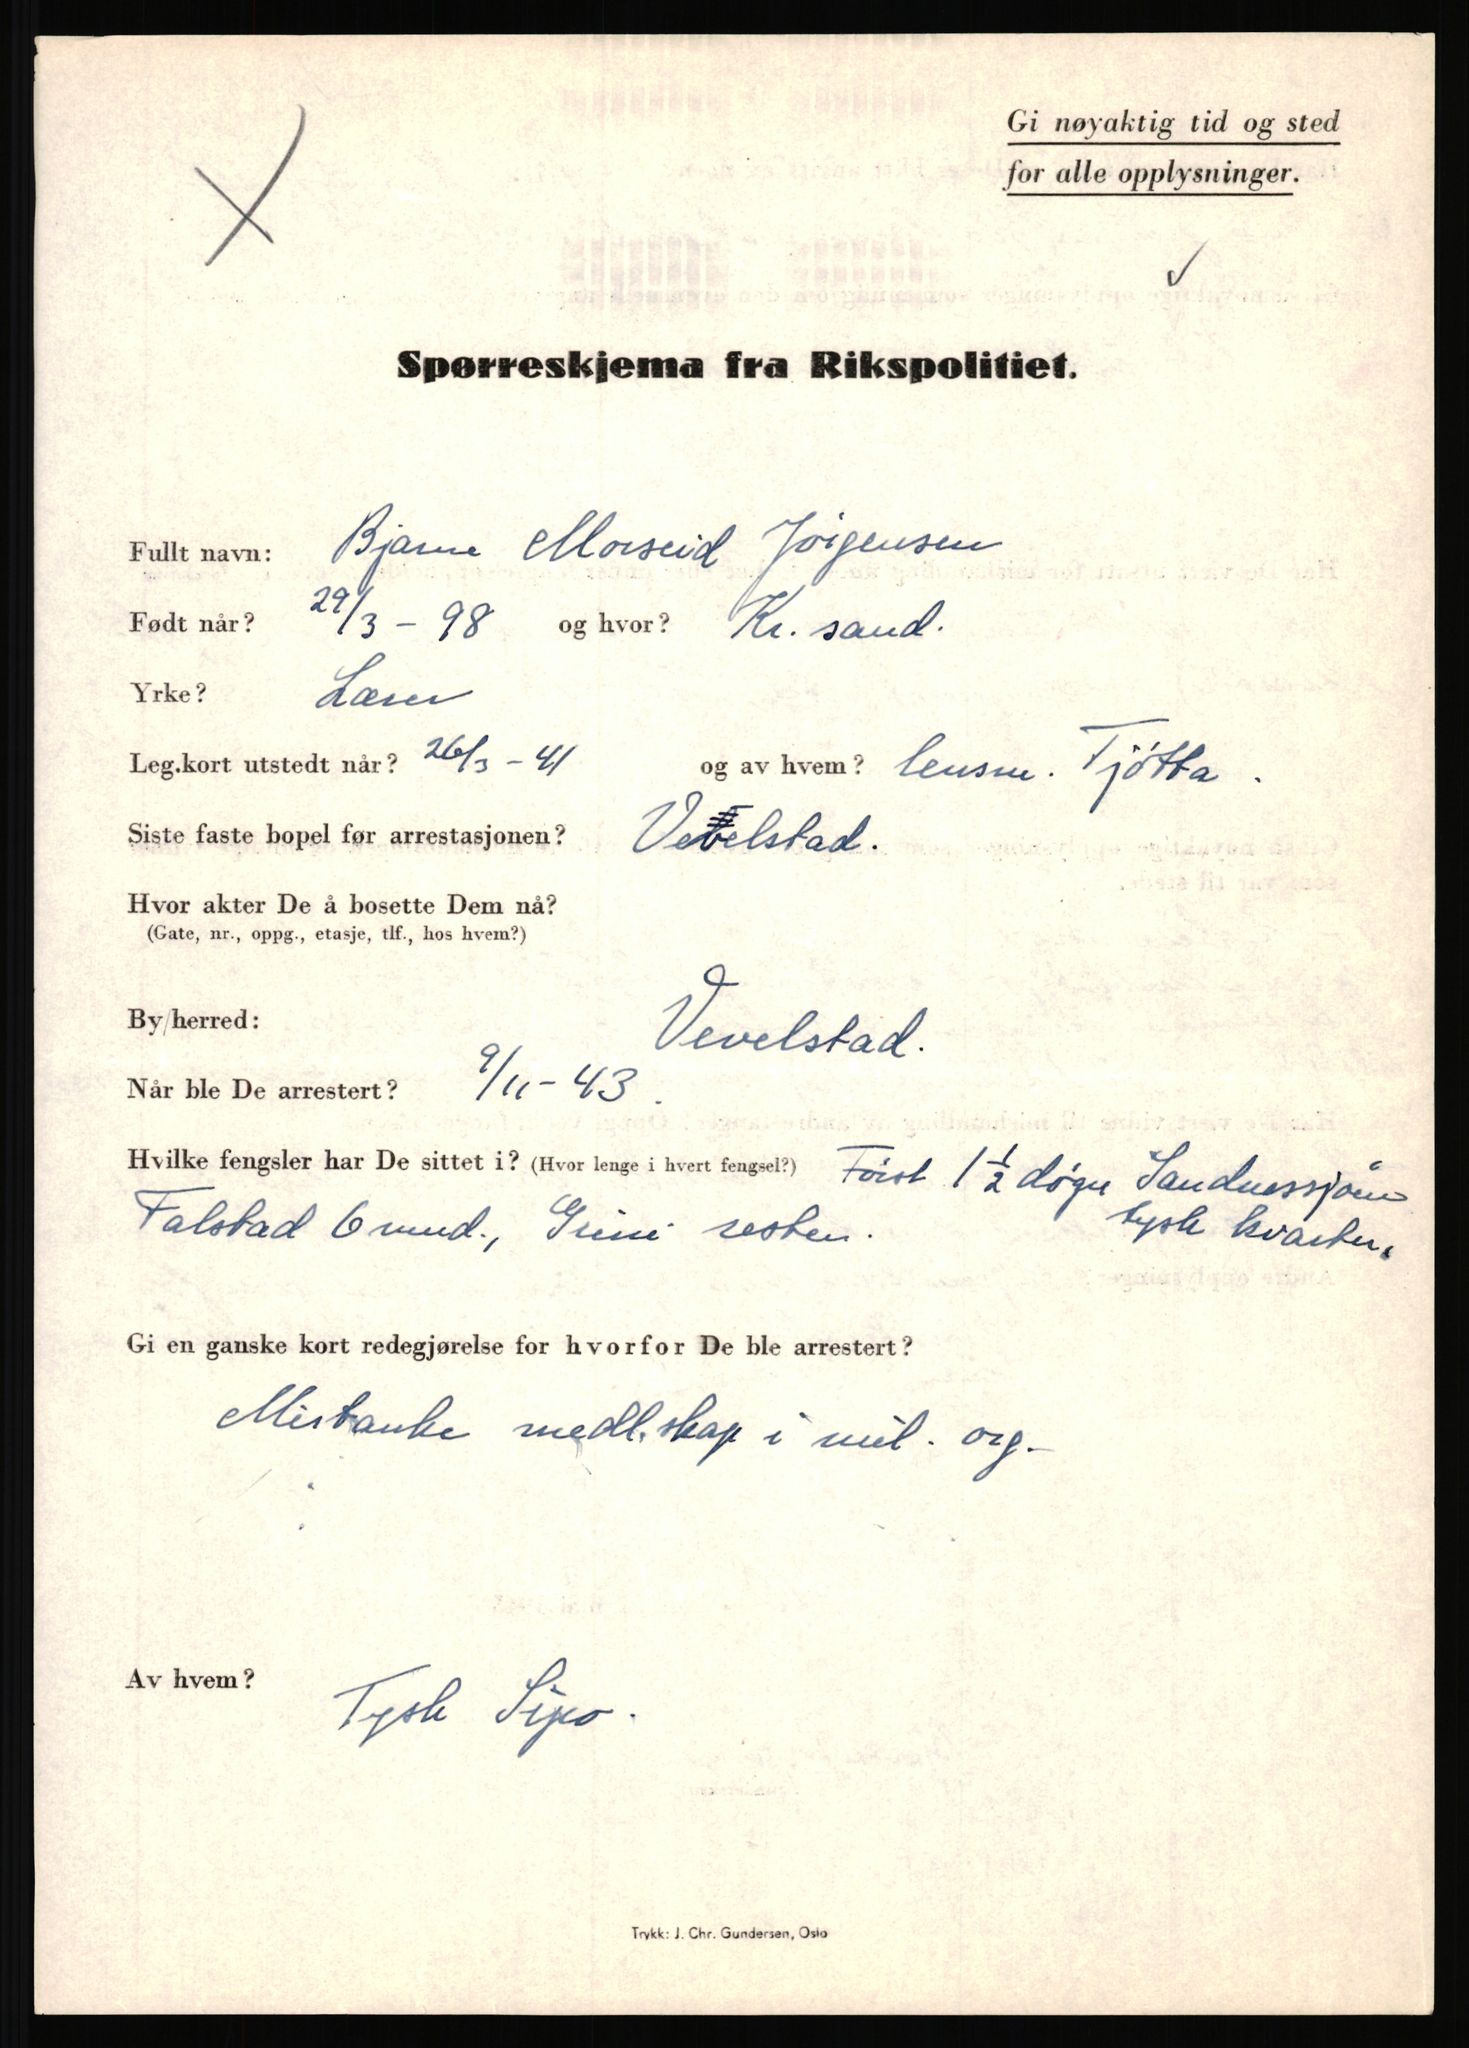 Gi nøyaktig tid og sted
for alle opplysninger.
Spørreskjema fra Rikspolitiet.
Fullt navn: Bjarne Morseid Jørgensen
Født når? 29/3 - 98 og hvor? Kr. sand.
Yrke? Lærer
Leg.kort utstedt når? 26/3 - 41 og av hvem? lensm. Tjøtta.
Siste faste bopel før arrestasjonen? Vevelstad.
Hvor akter De å bosette Dem nå?
(Gate, nr., oppg., etasje, tlf., hos hvem?)
By/herred: Vevelstad.
Når ble De arrestert? 9/11 - 43.
Hvilke fengsler har De sittet i? (Hvor lenge i hvert fengsel?) Först 1 1/2 døgn Sandnessjøen
tysk kvarter.
Falstad 6 mnd., Grini resten.
Gi en ganske kort redegjørelse for hvorfor De ble arrestert?
Mistanke medl.skap i mil. org.
Av hvem? Tysk Sipo.
Trykk: J. Chr. Gundersen, Oslo